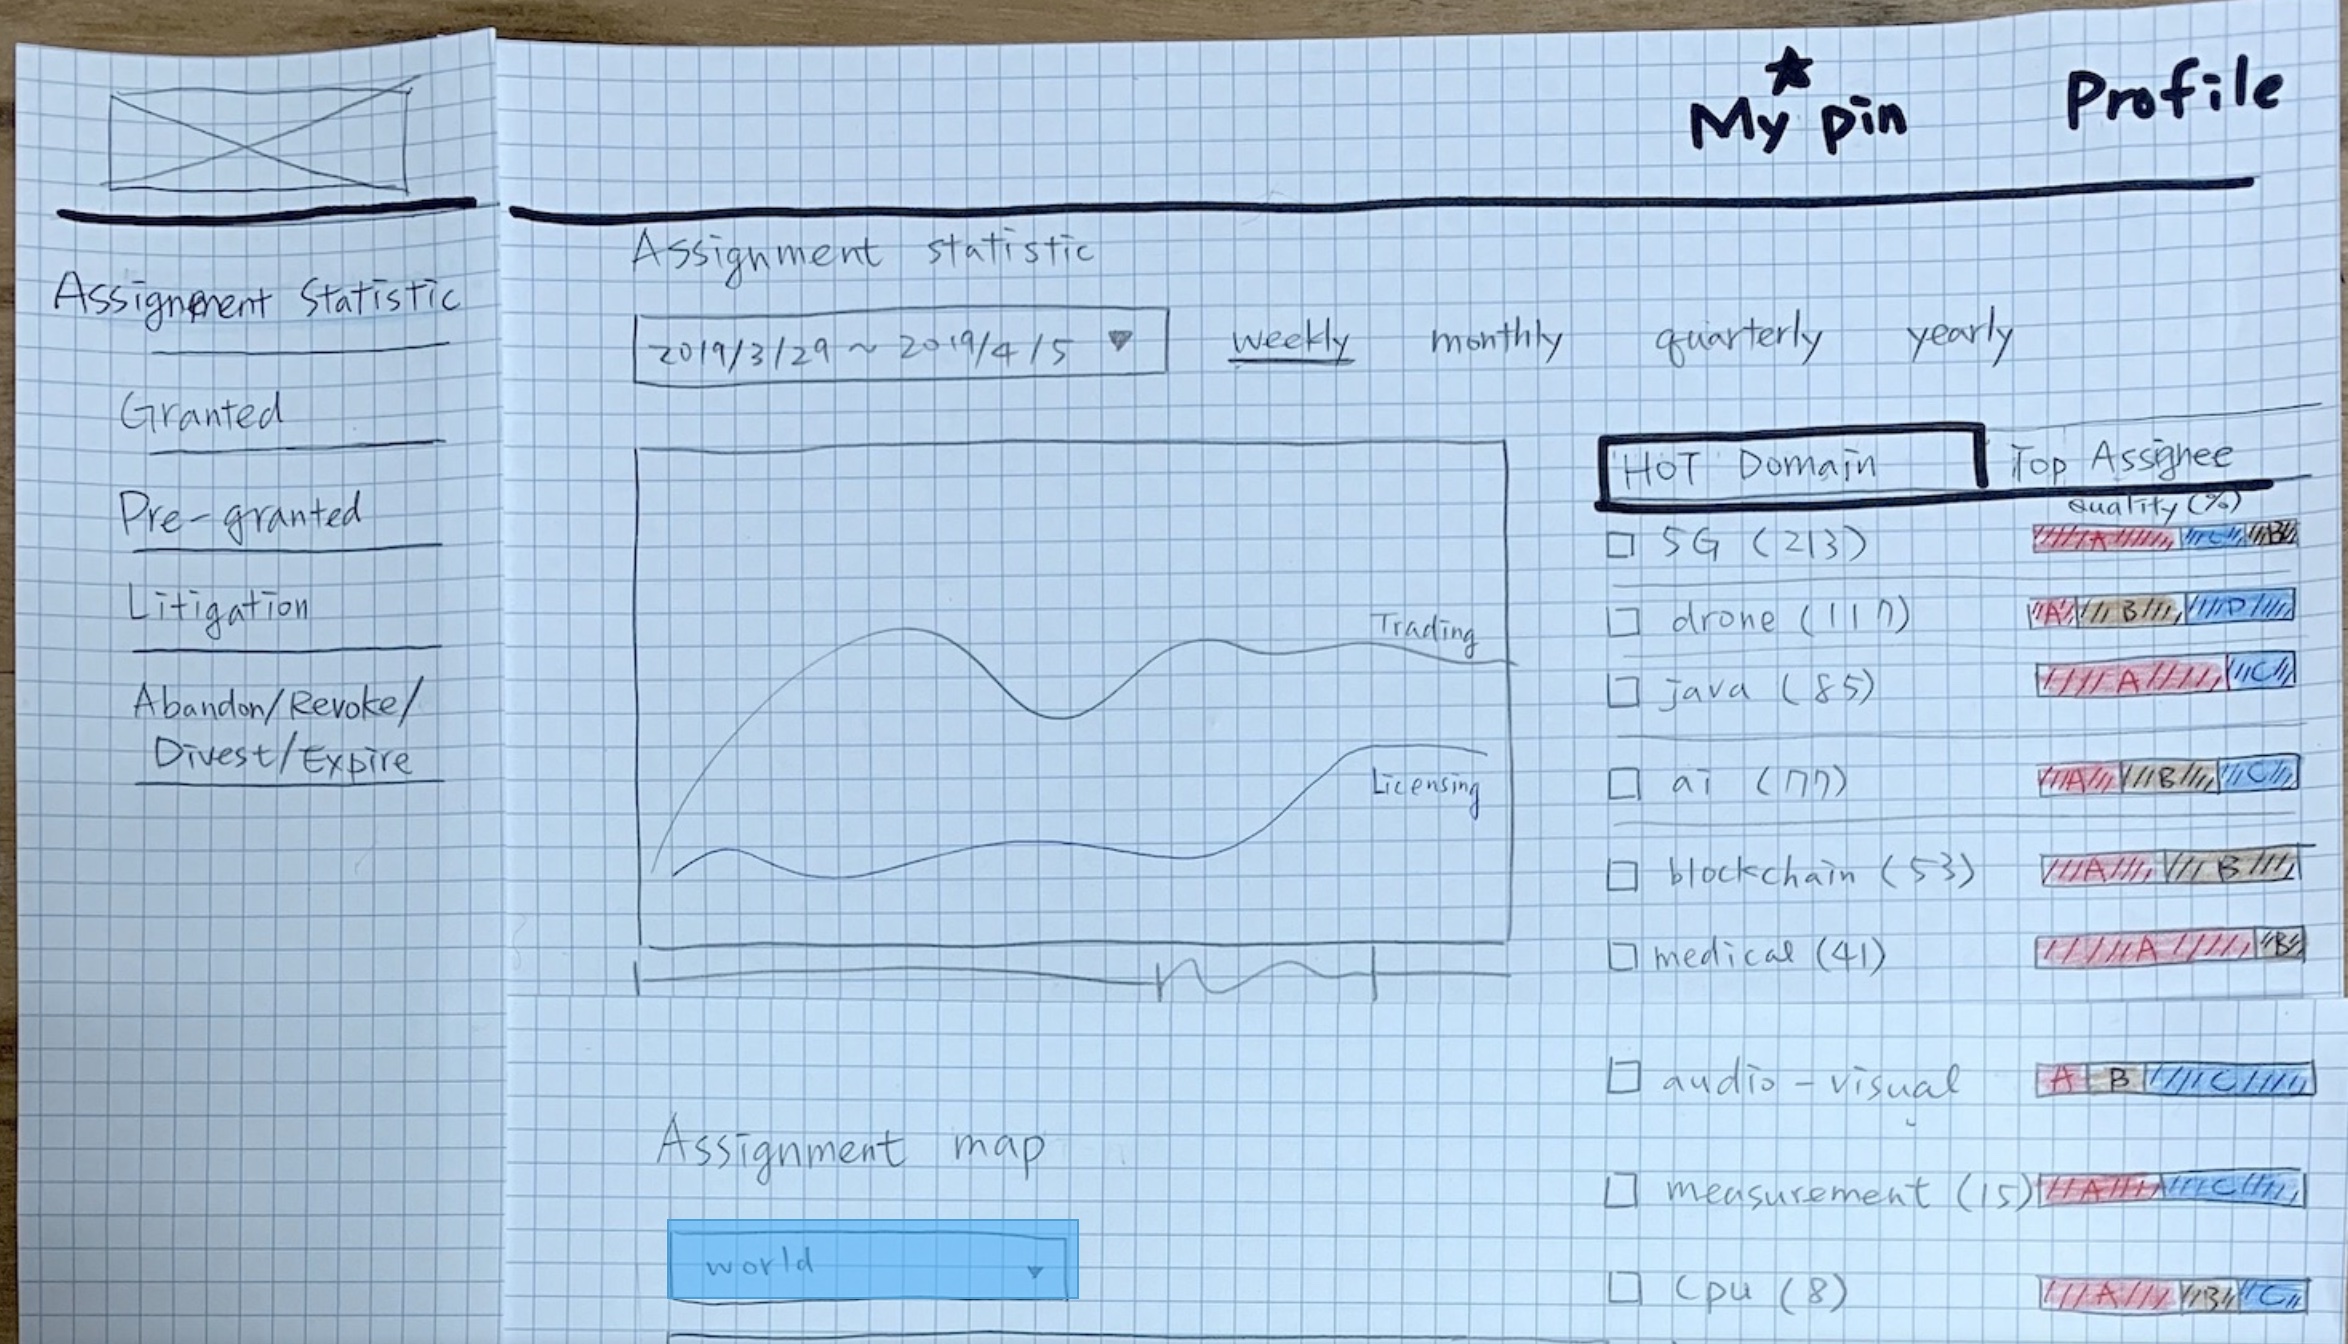 My pin
Profile
Assignment Statistic
Granted
Pre-granted
Litigation
Abandon/Revoke/
Divest/Expire
Assignment statistic
2019/3/29 ~ 2019/4/5
weekly monthly quarterly yearly
Trading
Licensing
HOT Domain
Top Assignee
quality (%)
5G (213)
A C B
drone (117)
A B D
java (85)
A C
ai (77)
A B C
blockchain (53)
A B
medical (41)
A B
audio-visual
A B C
measurement (15)
A C
cpu (8)
A B C
Assignment map
world